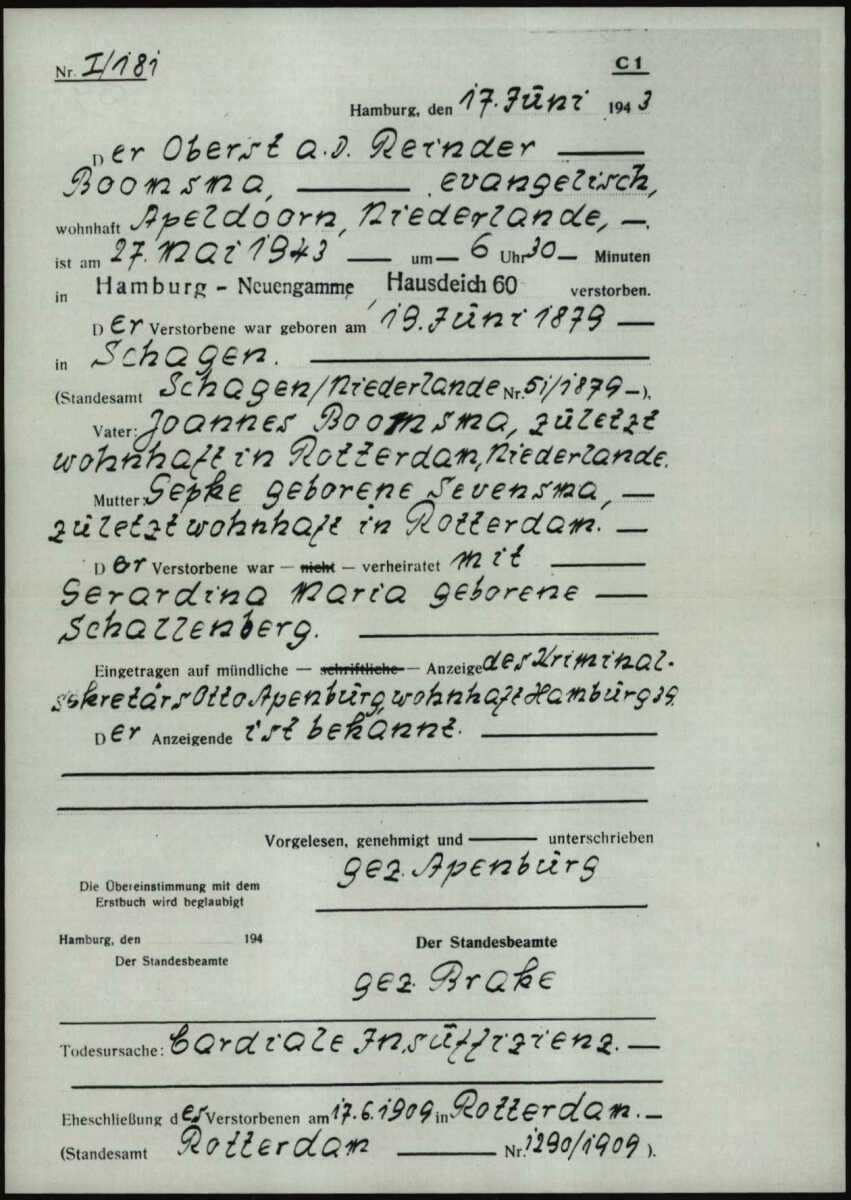 Nr. I/181
C 1
Hamburg, den 17. Juni 1943
Der Oberst a.D. Reinder
Boomsma, evangelisch,
wohnhaft Apeldoorn, Niederlande,
ist am 27. Mai 1943 um 6 Uhr 30 Minuten
in Hamburg - Neuengamme, Hausdeich 60 verstorben.
Der Verstorbene war geboren am 19. Juni 1879
in Schagen.
(Standesamt Schagen/Niederlande Nr. 51/1879 ).
Vater: Joannes Boomsma, zuletzt
wohnhaft in Rotterdam, Niederlande.
Mutter: Gepke geborene Sevensma,
zuletzt wohnhaft in Rotterdam.
Der Verstorbene war — nicht — verheiratet mit
Gerardina Maria geborene
Schallenberg.
Eingetragen auf mündliche — schriftliche — Anzeige des Kriminal-
sekretärs Otto Apenburg, wohnhaft Hamburg 39.
Der Anzeigende ist bekannt.
Vorgelesen, genehmigt und unterschrieben
gez. Apenburg
Die Übereinstimmung mit dem
Erstbuch wird beglaubigt
Hamburg, den 194
Der Standesbeamte
Der Standesbeamte
gez. Brake
Todesursache: Cardiale Insuffizienz.
Eheschließung des Verstorbenen am 17.6.1909 in Rotterdam.
(Standesamt Rotterdam Nr. 1290/1909 ).